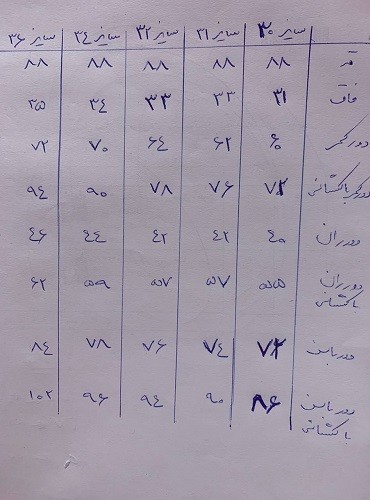 سایز ۳۰ سایز ۳۱ سایز ۳۲ سایز ۳۴ سایز ۳۶
قد ۸۸ ۸۸ ۸۸ ۸۸ ۸۸
فاق ۳۱ ۳۳ ۳۳ ۳۴ ۳۵
دور کمر ۶۰ ۶۲ ۶۴ ۷۰ ۷۲
دور کمر با کشسانی ۷۲ ۷۶ ۷۸ ۹۰ ۹۴
دور ران ۴۰ ۴۲ ۴۲ ۴۴ ۴۶
دور ران ۵۵ ۵۷ ۵۷ ۵۹ ۶۲
با کشسانی
دور باسن ۷۲ ۷۴ ۷۶ ۷۸ ۸۴
دور باسن ۸۶ ۹۰ ۹۴ ۹۶ ۱۰۲
با کشسانی